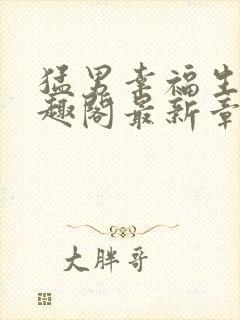 猛男幸福生
趣阁最新章
大胖哥